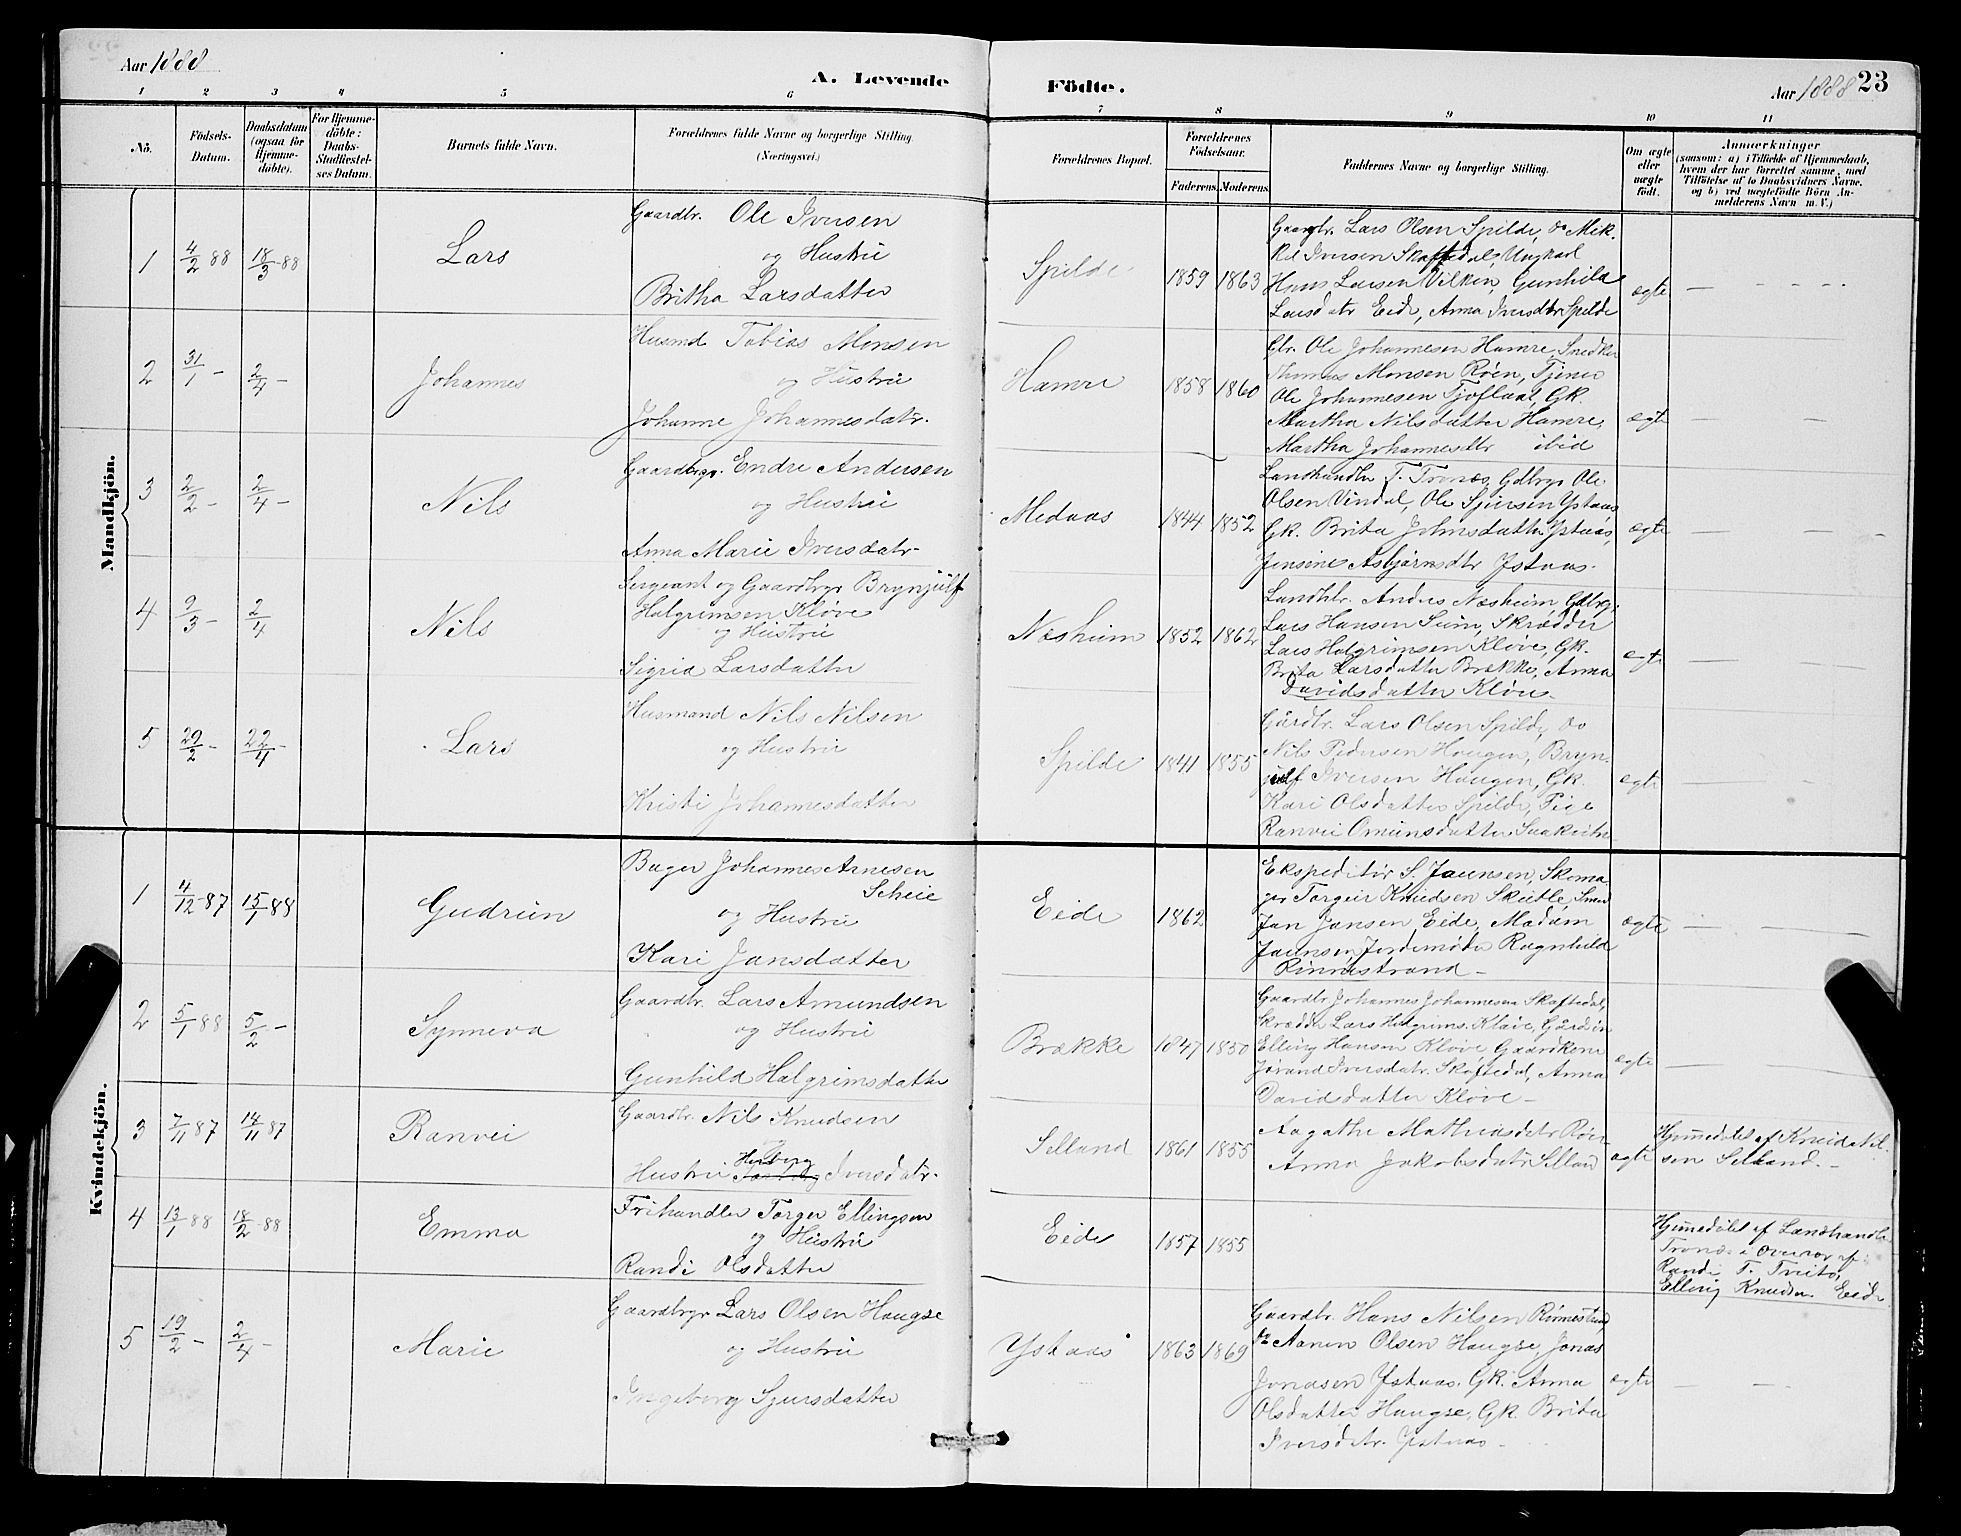 Aar 1888
A. Levende
Födte.
Aar 1888 23
1 2 3 4 5 6 7 8 9 10 11
No.
Födsels-Datum.
Daabsdatum (ogsaa for Hjemme-døbte).
For Hjemme-døbte: Daabs-Stadfæstel-ses Datum.
Barnets fulde Navn.
Forældrenes fulde Navne og borgerlige Stilling.
(Næringsvei.)
Forældrenes Bopæl.
Forældrenes Födselsaar.
Faderens. Moderens.
Faddernes Navne og borgerlige Stilling.
Om ægte eller uægte födt.
Anmærkninger
(saasom: a) i Tilfælde af Hjemmedaab,
hvem der har forrettet samme, med
Tilföielse af to Daabsvidners Navne.
og b) ved uægtefödte Börn An-
melderens Navn m. V.)
Mandkjön.
1 4/2 88 18/3-88 Lars
Gaardbr. Ole Iversen
og Hustru
Britha Larsdatter
Spilde 1859 1863
Gaardbr. Lars Olsen Spilde, do Mik-
kel Iversen Skaftedal, Ungkarl
Hans Larsen Vilken, Gunhild
Larsdatr Eide, Anna Iversdtr Spilde
ægte — - - - -
2 31/1 - 2/4 - Johannes
Husmd Tobias Monsen
og Hustru
Johanne Johannesdatr.
Hamre 1858 1860
Gbr. Ole Johannesen Hamre, Snedker
Thomas Monsen Røen, Tjener
Ole Johannesen Tjoflaat, Gk.
Martha Nilsdatter Hamre,
Martha Johannesdtr ibid
ægte — —
3 2/2 - 2/4 - Nils
Gaardbrgr. Endre Andersen
og Hustru
Anna Marie Iversdatr.
Medaas 1844 1852
Landhandler T. Tronæs, Gdbrgr Ole
Olsen Vindal, Ole Sjursen Ystaas
Gk. Brita Johnsdatter Ystaas,
Jensine Asbjørnsdtr Ystaas.
ægte — — -
4 9/3 - 2/4 Nils
Sergeant og Gaardbrgr Brynjulf
Halgrimsen Kløve
og Hustru
Sigrid Larsdatter
Næsheim 1852 1862
Landhdl. Anders Næsheim, Gdbrg.
Lars Hansen Seim, Skrædder
Lars Halgrimsen Kløve, Gk.
Brita Larsdatter Brække, Anna
Davidsdatter Kløve.
ægte — —
5 29/2 - 22/4 - Lars
Husmand Nils Nilsen
og Hustru
Kristi Johannesdatter
Spilde 1841 1855
Gårdbr. Lars Olsen Spilde, do
Nils Pedersen Haugen, Bryn-
julf Iversen Haugen, Gk.
Kari Olsdatter Spilde, Pige
Ranvei Omundsdatter
ægte — -
Kvindekjön.
1 4/12-87 15/1 88 Gudrun
Bager Johannes Arnesen
Scheie
og Hustru
Kari Jansdatter
Eide 1862
Ekspeditør S. Jaunsen, Skoma-
ger Torgeir Knudsen Skeitle, Smed
Jan Jansen, Eide, Madam
Jaunsen, Jordemoder Ragnhild
Rinnestrand -
ægte — —
2 5/1 88 5/2 - Synneva
Gaardbr. Lars Amundsen
og Hustru
Gunhild Halgrimsdatter
Brække 1847 1850
Gaardbr Johannes Johannesen Skaftedal,
Skrædder Lars Halgrims. Kløve,
Elling Hansen Kløve, Gaardkone
Jørand Iversdatr. Skaftedal, Anna
Davidsdatter Kløve -
ægte — —
3 7/11 87 14/11 87 Ranvei
Gaardbr. Nils Knudsen
og
Herborg
Hustru Iversdatr.
Selland 1861 1855
Aagathe Mathiasdatr Røen
Anna Jakobsdatr Selland
ægte
Hjemmedøbt af Knud Nil-
sen Selland. -
4 13/1 88 18/2-88 Emma
Frihandler Torger Ellingsen
og Hustru
Randi Olsdatter
Eide 1857 1855
Hjemmedøbt af Landhandler
Tronæs i Overvær af
Randi T. Tveito,
Elling Knudsen Eide.
5 19/2 - 2/4 - Marie
Gaardbrgr Lars Olsen Haugse
og Hustru
Ingeborg Sjursdatter
Ystaas 1863 1869
Gaardbr. Hans Nilsen Rinnestrand,
do Aanen Olsen Haugse, Jonas
Jonasen Ystaas. Gk. Anna
Olsdatter Haugse, Gk. Brita
Iversdatr. Ystaas -
ægte — —